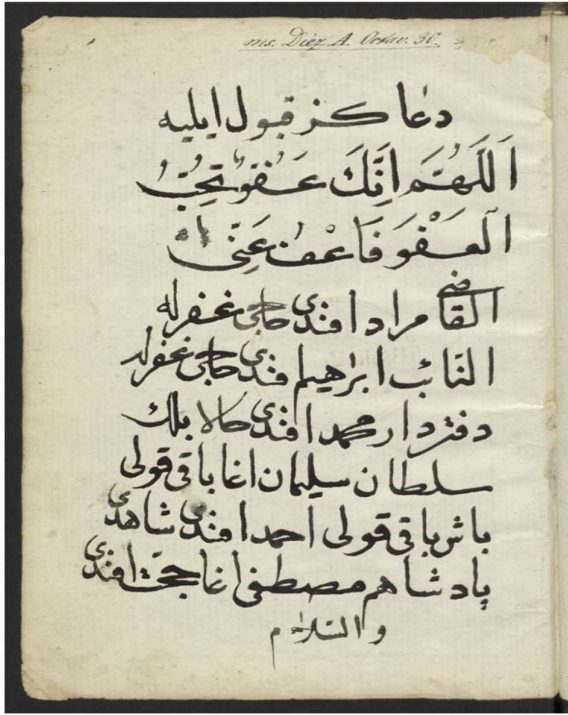 ms. Diez A. Octav. 30.
دعا كز قبول ايليه
اَللَّهُمَّ اِنَّكَ عَفُوٌّ تُحِبُّ
اَلْعَفْوَ فَاعْفُ عَنِّى
القاضى مراد افندى حاجى غفرله
النائب ابرهيم افندى حاجى غفرله
دفتردار محمد افندى كالا بلك
سلطان سليمان اغا باقى قولى
باش باقى قولى احمد افندى شاهدى
پادشاهم مصطفى اغا افندى
والسلام